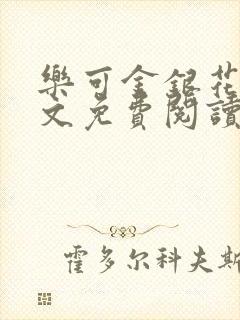 樂可金銀花
文免費閱讀
霍多尔科夫斯